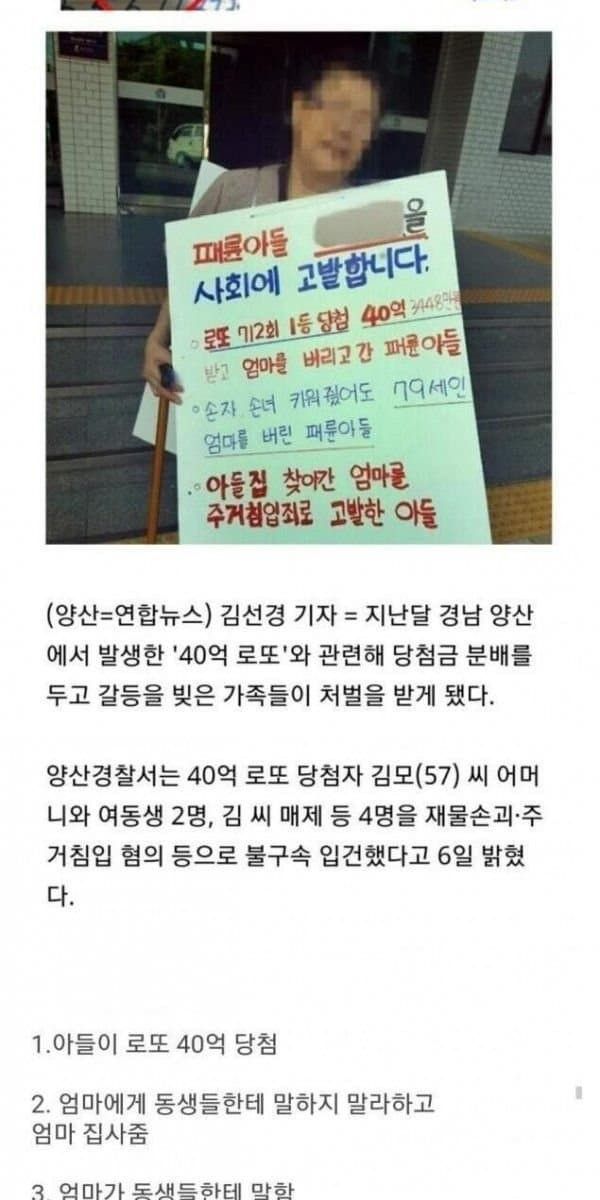 패륜아들 을
사회에 고발합니다.
○ 로또 712회 1등 당첨 40억 3448만원
받고 엄마를 버리고간 패륜아들
○ 손자 손녀 키워줬어도 79세인
엄마를 버린 패륜아들
○ 아들집 찾아간 엄마를
주거침입죄로 고발한 아들
(양산=연합뉴스) 김선경 기자 = 지난달 경남 양산
에서 발생한 '40억 로또'와 관련해 당첨금 분배를
두고 갈등을 빚은 가족들이 처벌을 받게 됐다.
양산경찰서는 40억 로또 당첨자 김모(57) 씨 어머
니와 여동생 2명, 김 씨 매제 등 4명을 재물손괴·주
거침입 혐의 등으로 불구속 입건했다고 6일 밝혔
다.
1.아들이 로또 40억 당첨
2. 엄마에게 동생들한테 말하지 말라하고
엄마 집사줌
3. 엄마가 동생들한테 말함